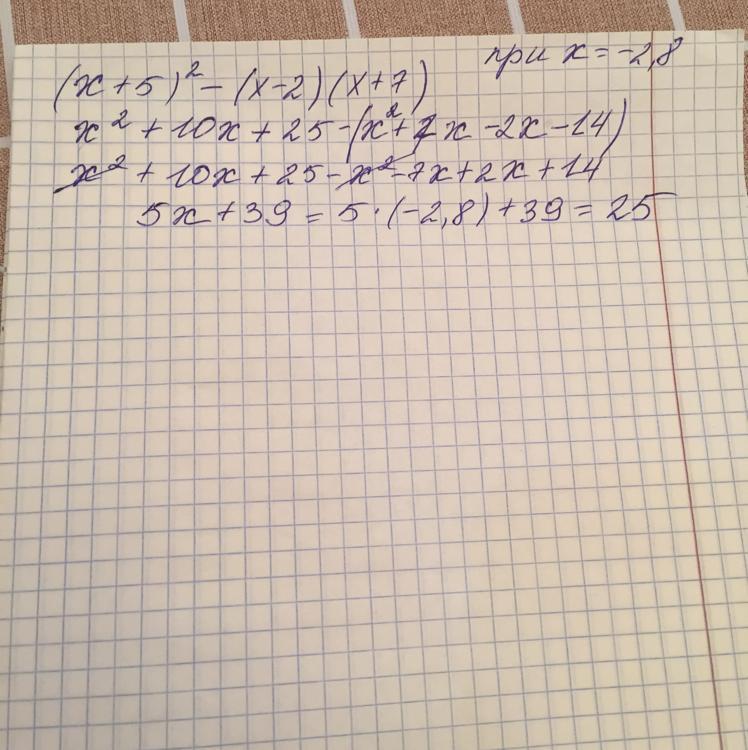 (x+5)² - (x-2)(x+7) при x = -2,8
x² + 10x + 25 - (x² + 7x - 2x - 14)
x² + 10x + 25 - x² - 7x + 2x + 14
5x + 39 = 5·(-2,8) + 39 = 25